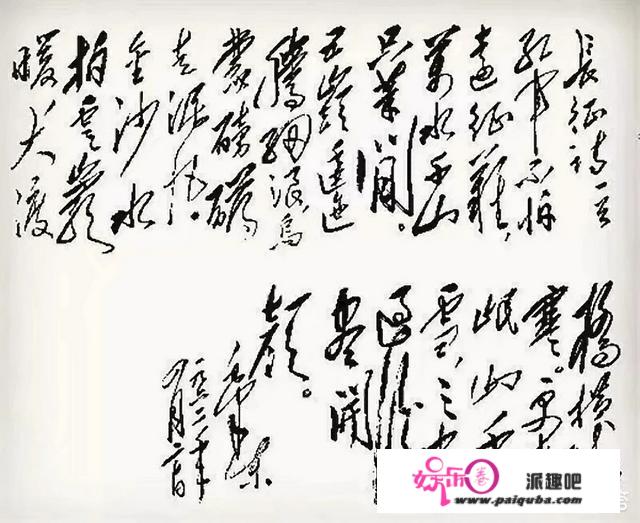 長征詩一首
紅軍不怕
遠征難,
萬水千山
只等閒。
五嶺逶迤
騰細浪烏
蒙磅礴
走泥丸。
金沙水
拍雲巖
暖大渡
橋橫
寒。更
岷山千
雪,三
過
盡開
顏。
毛澤東
一九六二年
四月
娱乐圈 派趣吧
www.paiquba.com